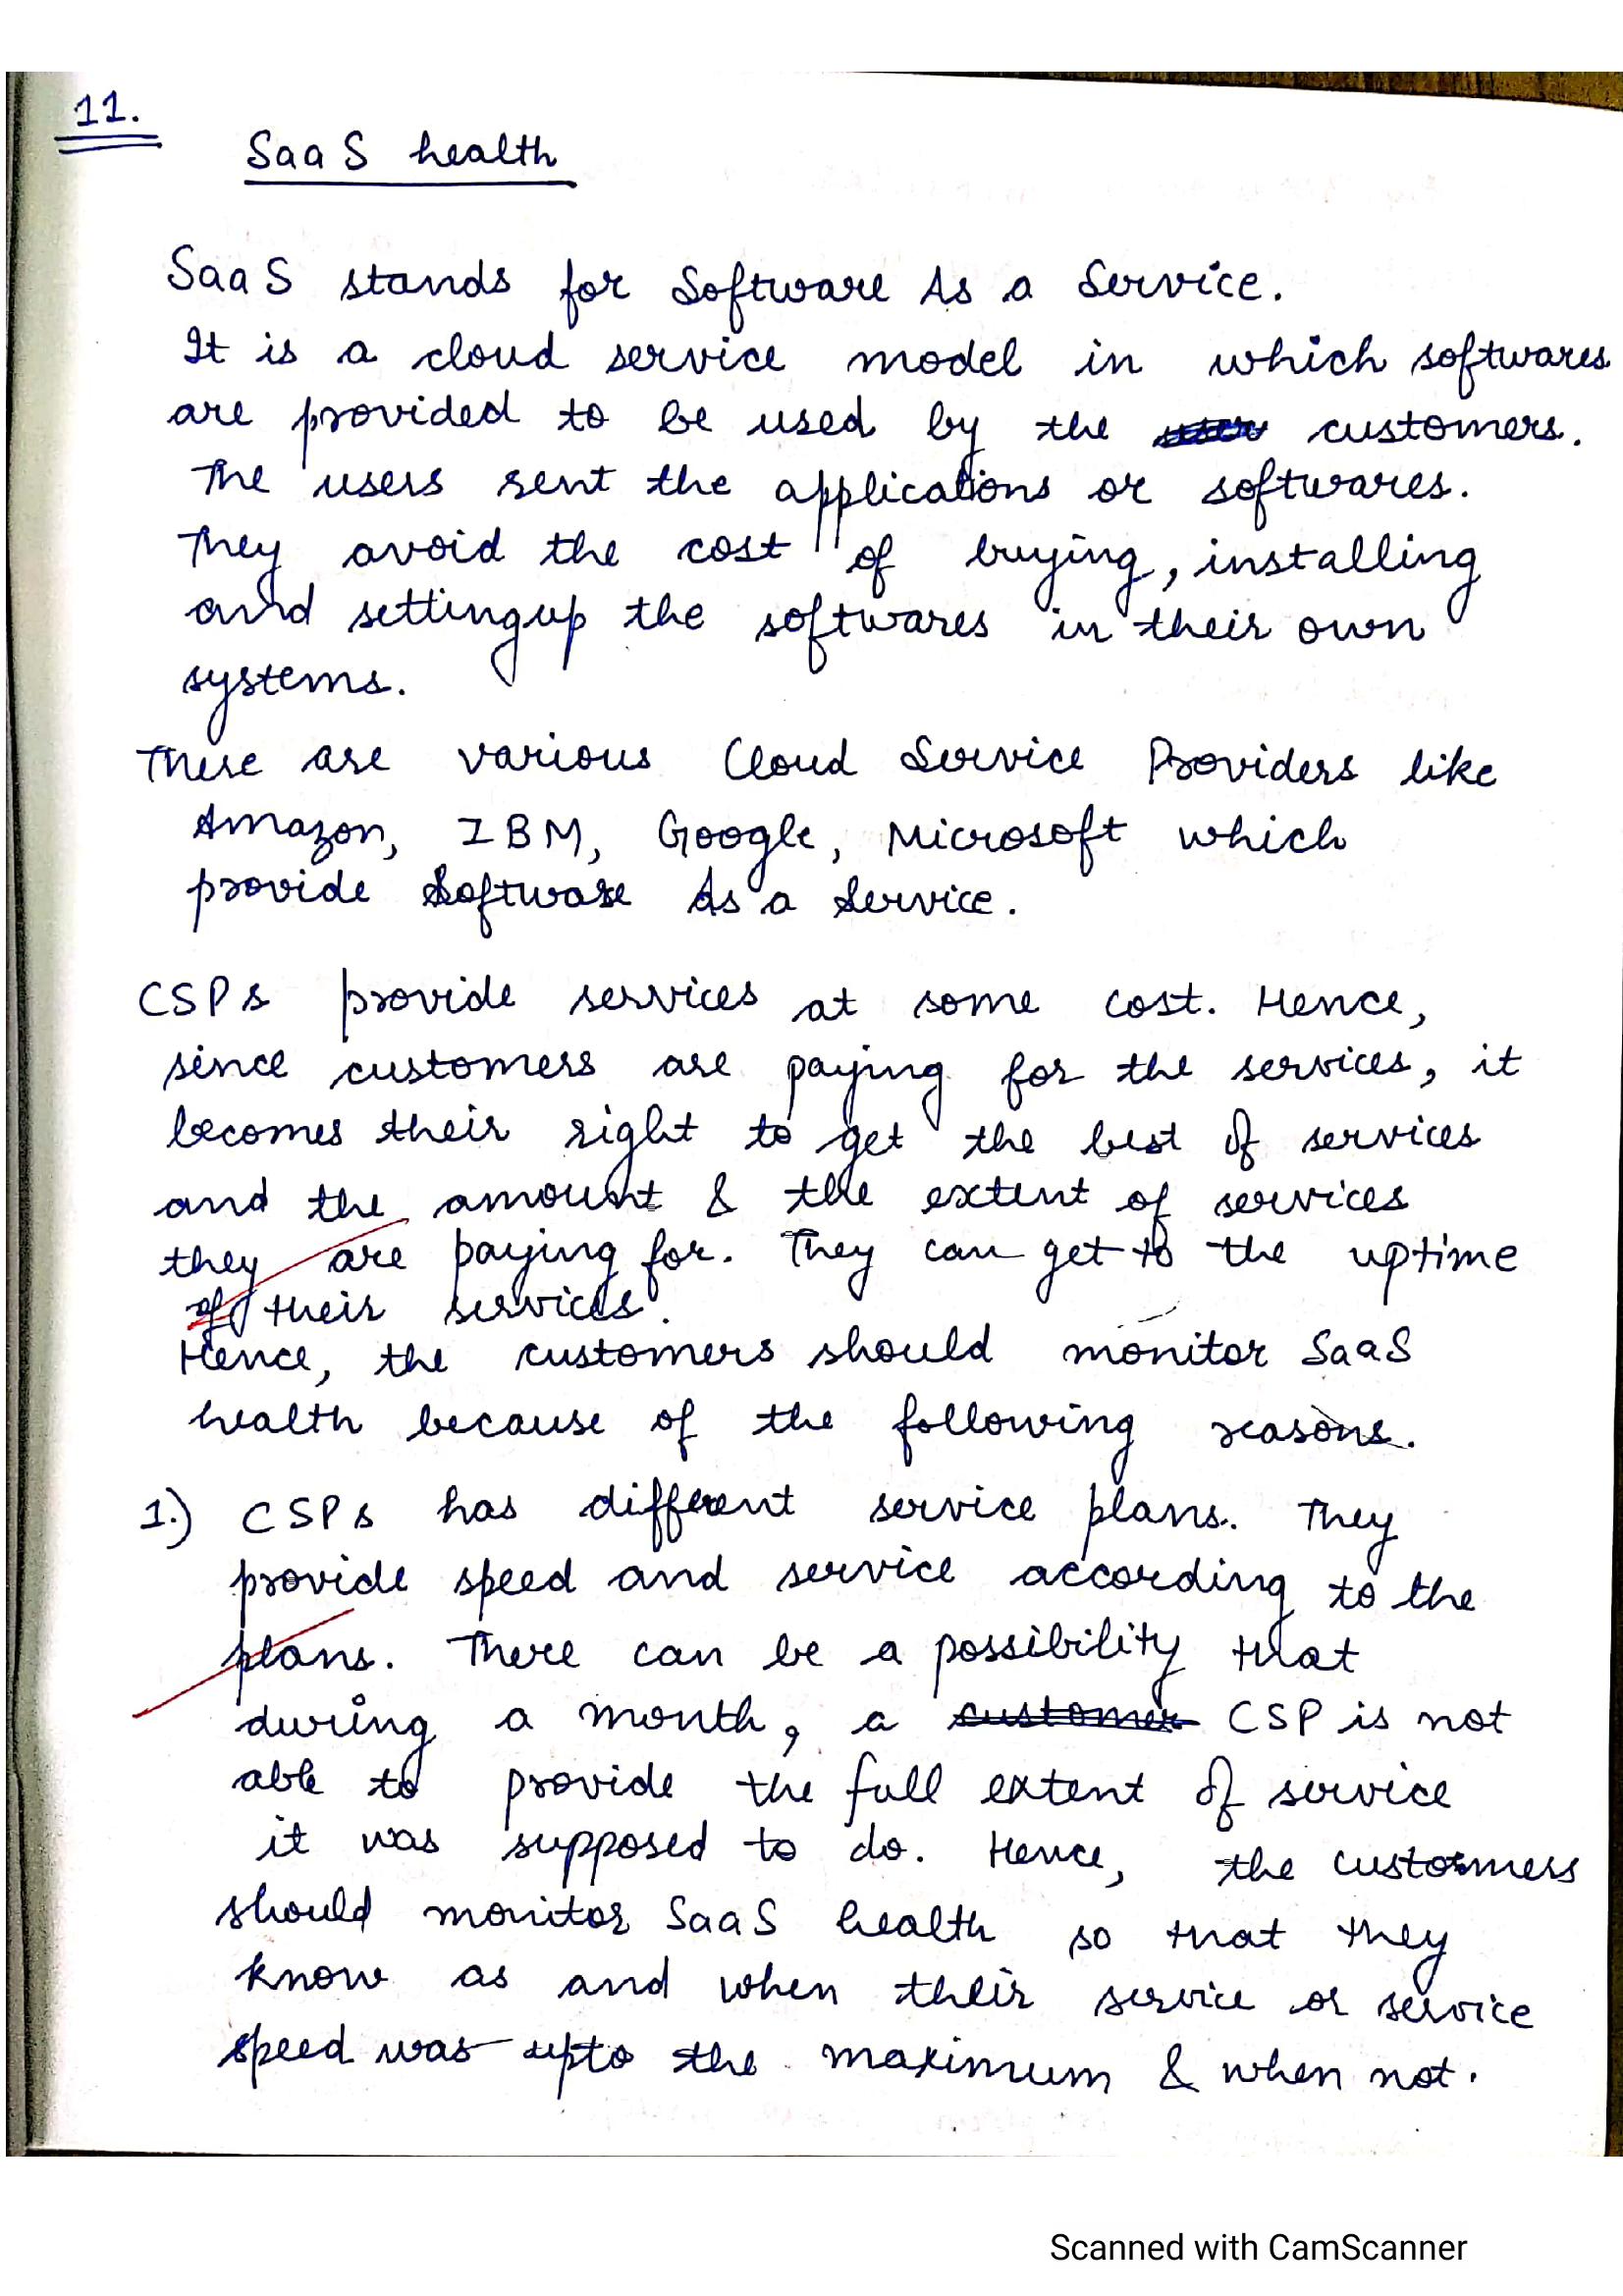 11.
SaaS health
SaaS stands for Software As a Service.
It is a cloud service model in which softwares
are provided to be used by the user customers.
The users rent the applications or softwares.
They avoid the cost of buying, installing
and settingup the softwares in their own
systems.
There are various Cloud Service Providers like
Amazon, IBM, Google, Microsoft which
provide Software As a Service.
CSPs provide services at some cost. Hence,
since customers are paying for the services, it
becomes their right to get the best of services
and the amount & the extent of services
they are paying for. They can get to the uptime
of their services.
Hence, the customers should monitor SaaS
health because of the following reasons.
1.) CSPs has different service plans. They
provide speed and service according to the
plans. There can be a possibility that
during a month, a customer CSP is not
able to provide the full extent of service
it was supposed to do. Hence, the customers
should monitor SaaS health so that they
know as and when their service or service
speed was upto the maximum & when not.
Scanned with CamScanner